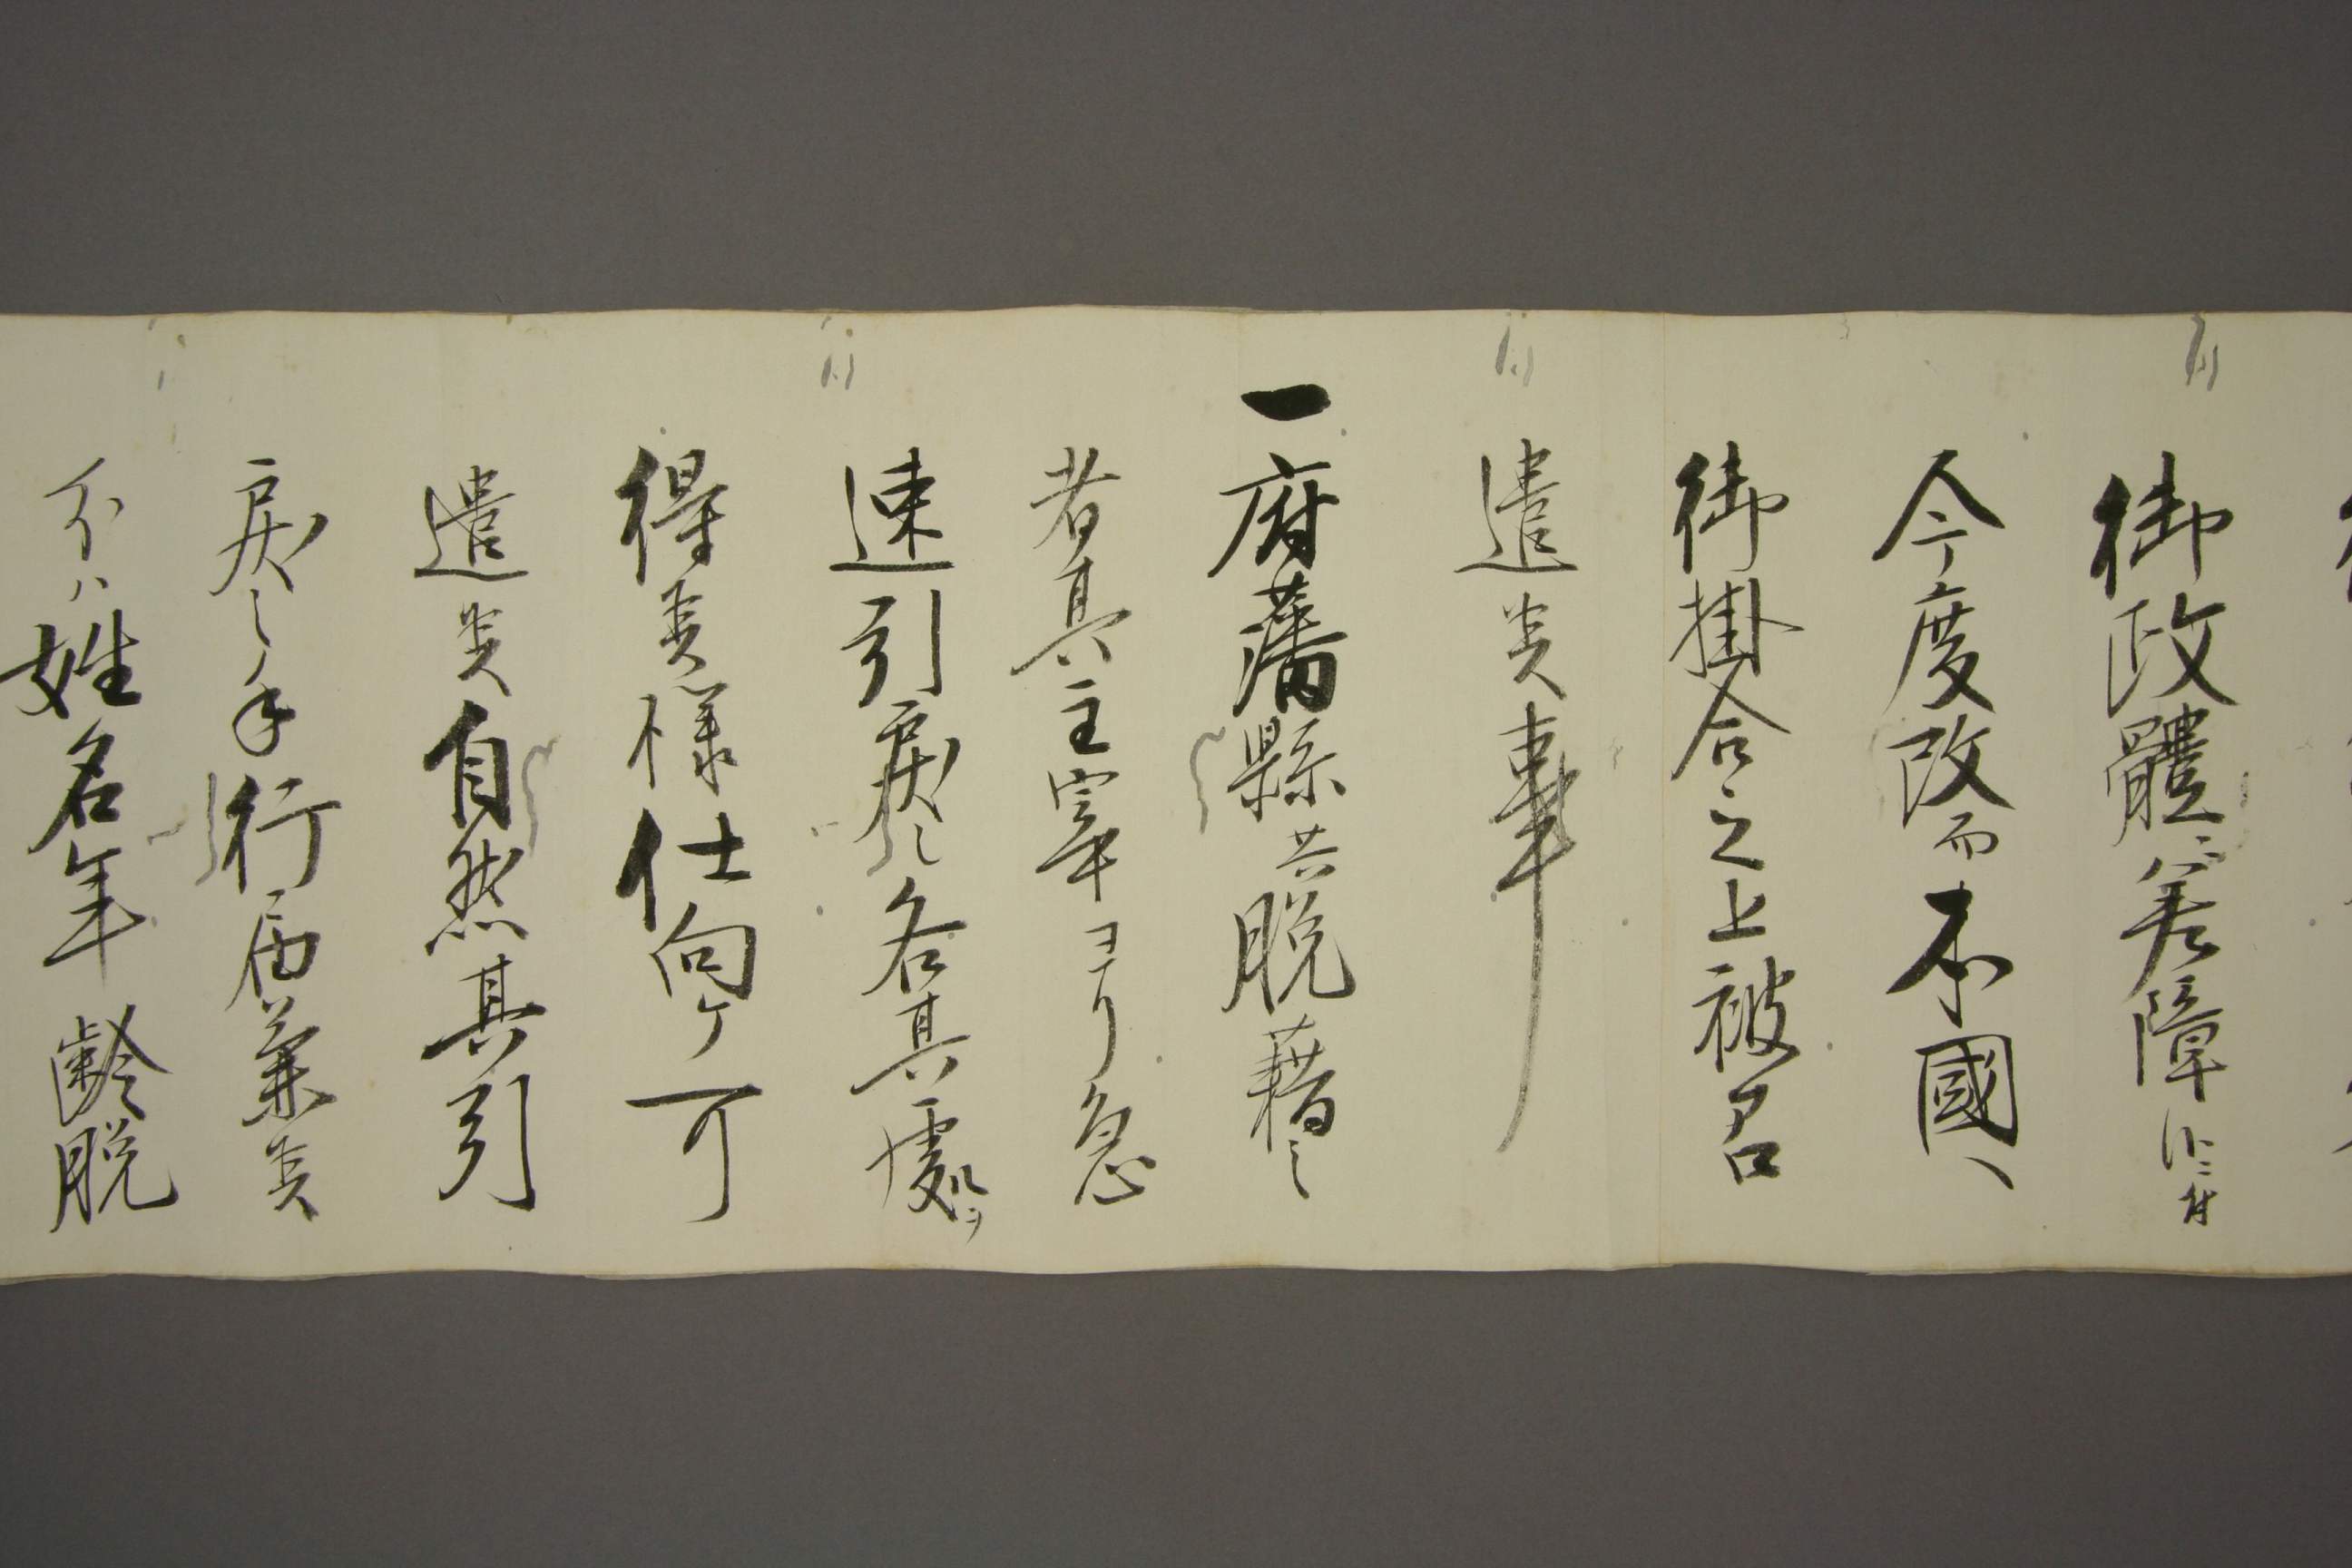 御政體ニ差障候ニ付
今度改而本國ヘ
御掛合之上被召
遣候事
一府藩縣共脱藉之
者其主宰ヨリ急
速引戻シ各其處ヲ
得候様仕向ケ可
遣候自然其引
戻シ手行届兼候
分ハ姓名年齢脱